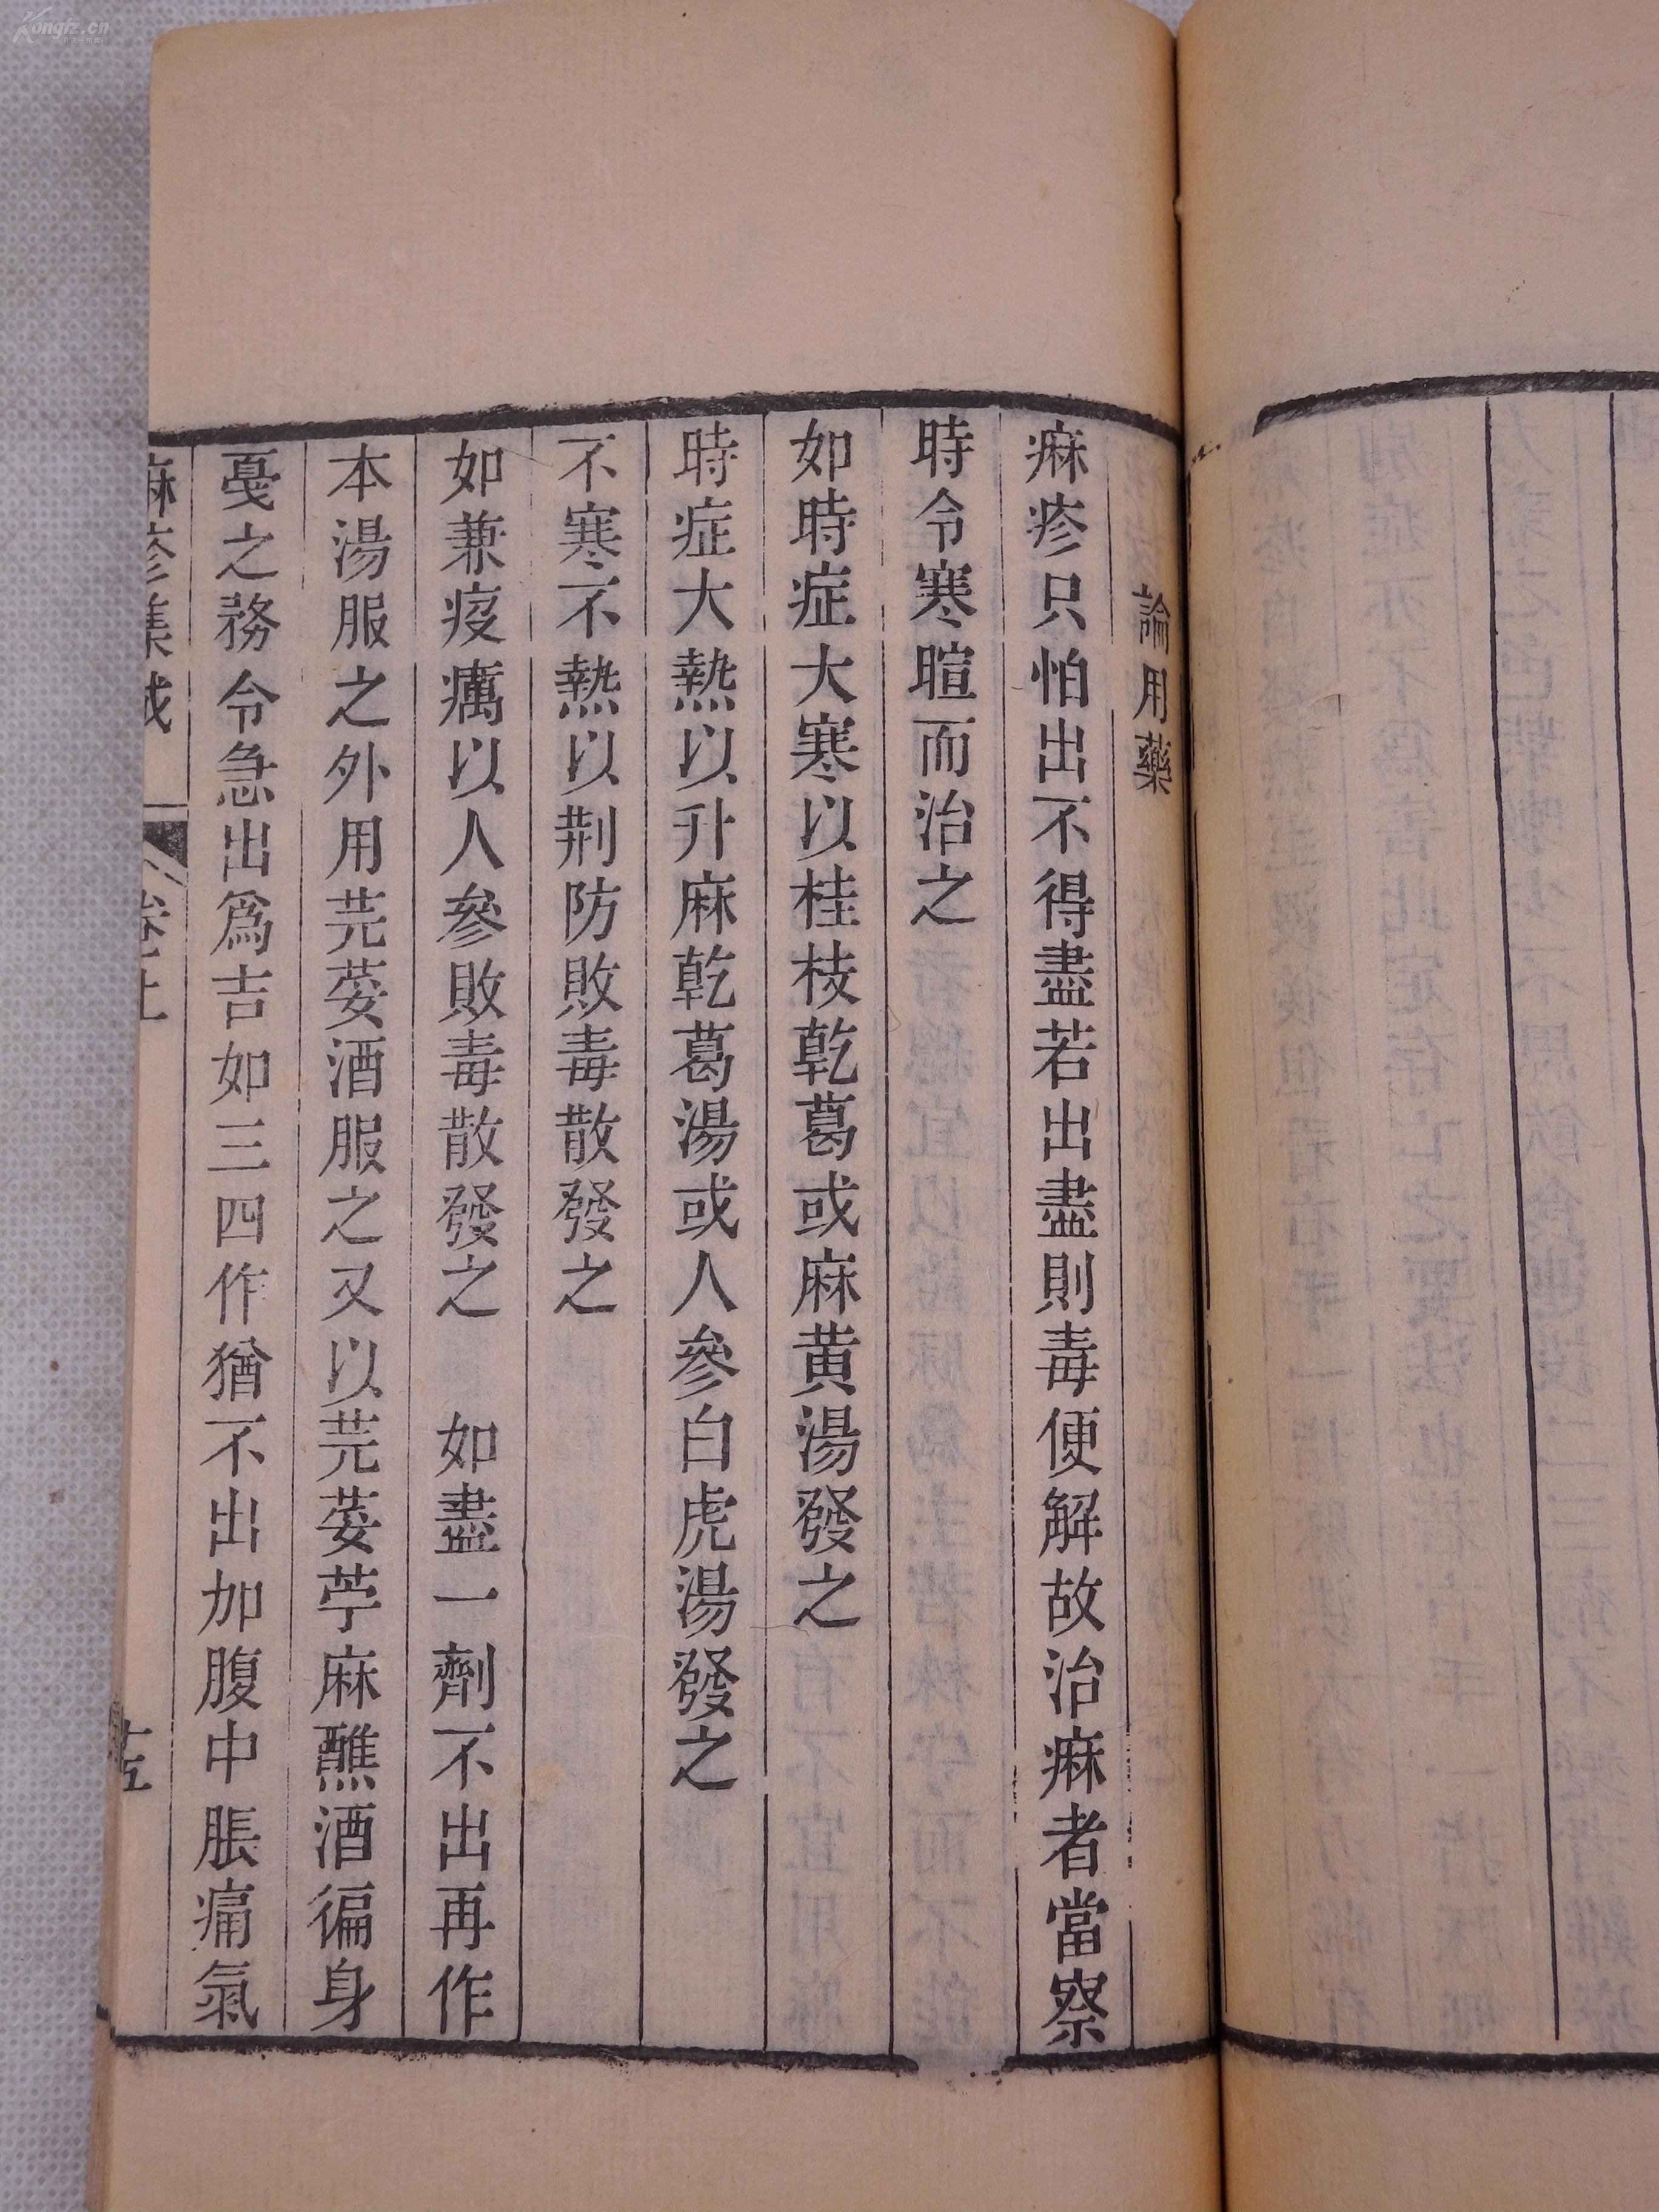 論用藥
痳疹只怕出不得盡若出盡則毒便解故治痳者當察
時令寒暄而治之
如時症大寒以桂枝乾葛或麻黄湯發之
時症大熱以升麻乾葛湯或人參白虎湯發之
不寒不熱以荆防敗毒散發之
如兼疫癘以人參敗毒散發之　如盡一劑不出再作
本湯服之外用芫荽酒服之又以芫荽苧麻醮酒徧身
戞之務令急出爲吉如三四作猶不出加腹中脹痛氣
麻疹集成　卷上
Kongfz.cn